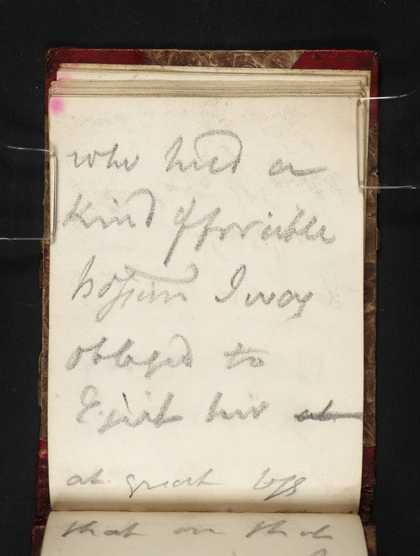 who had a
Kind of forcible
I was
obliged to
Eject him
at great loss
that on that